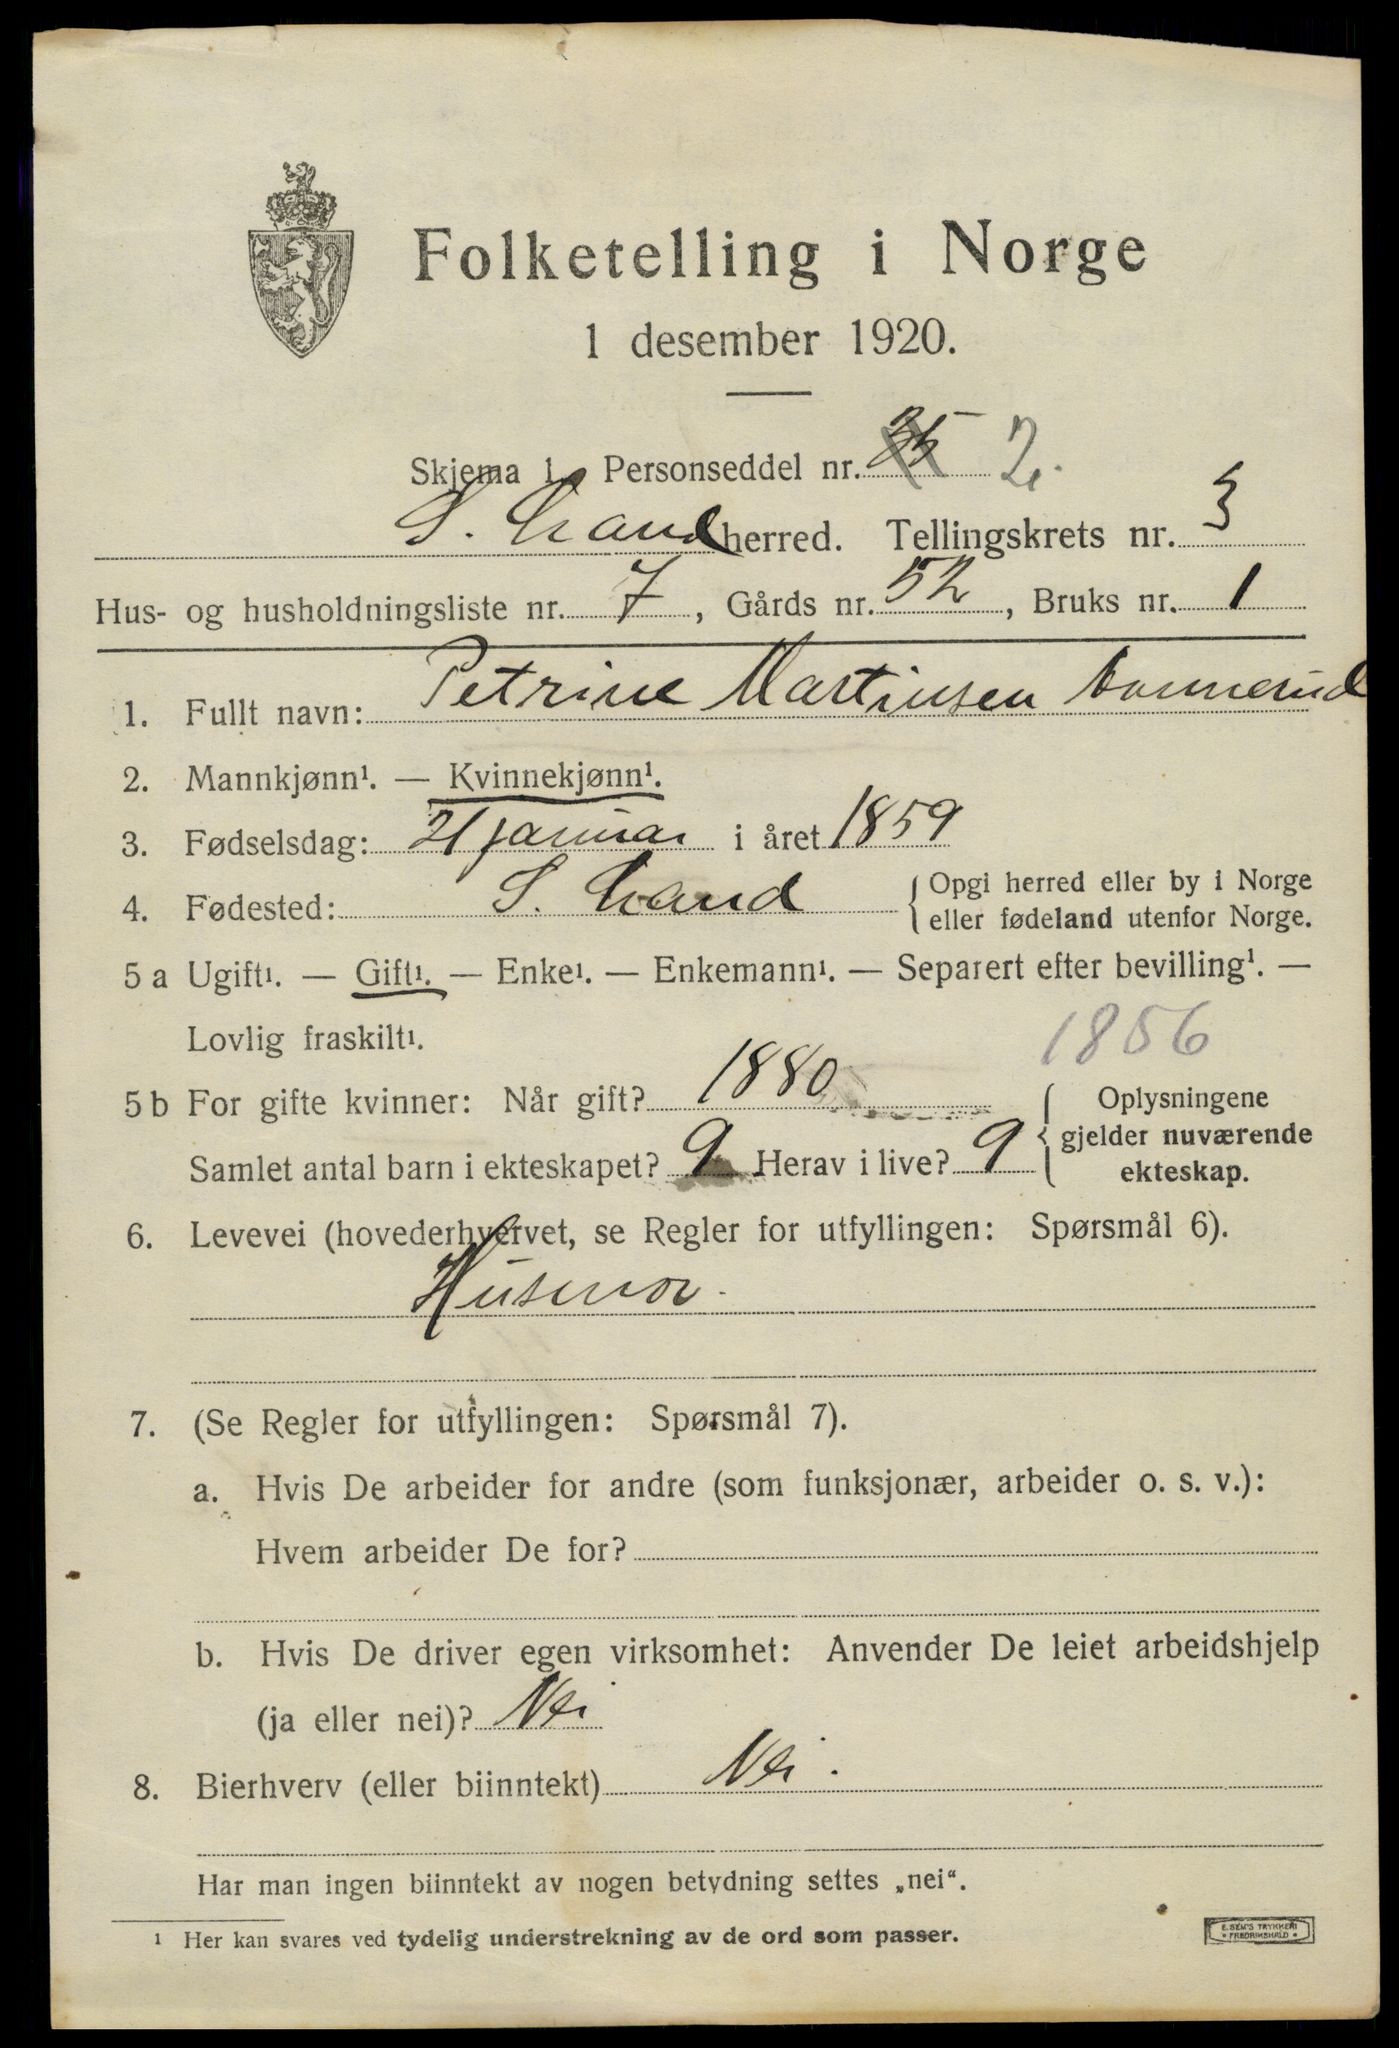 Folketelling i Norge
1 desember 1920.
Skjema 1. Personseddel nr. 35 2.
S. Land herred. Tellingskrets nr. 3
Hus- og husholdningsliste nr. 7, Gårds nr. 52, Bruks nr. 1
1. Fullt navn: Petrine Martinsen
2. Mannkjønn¹. — Kvinnekjønn¹.
3. Fødselsdag: 21 januar i året 1859
4. Fødested: S. Land { Opgi herred eller by i Norge
eller fødeland utenfor Norge.
5 a Ugift¹. — Gift¹. — Enke¹. — Enkemann¹. — Separert efter bevilling¹. —
Lovlig fraskilt¹.
1856
5 b For gifte kvinner: Når gift? 1880 { Oplysningene
gjelder nuværende
ekteskap.
Samlet antal barn i ekteskapet? 9 Herav i live? 9
6. Levevei (hovederhvervet, se Regler for utfyllingen: Spørsmål 6).
Husmor.
7. (Se Regler for utfyllingen: Spørsmål 7).
a. Hvis De arbeider for andre (som funksjonær, arbeider o. s. v.):
Hvem arbeider De for?
b. Hvis De driver egen virksomhet: Anvender De leiet arbeidshjelp
(ja eller nei)? Nei
8. Bierhverv (eller biinntekt) Nei.
Har man ingen biinntekt av nogen betydning settes „nei“.
¹ Her kan svares ved tydelig understrekning av de ord som passer.
E. SEM'S TRYKKERI
FREDRIKSHALD